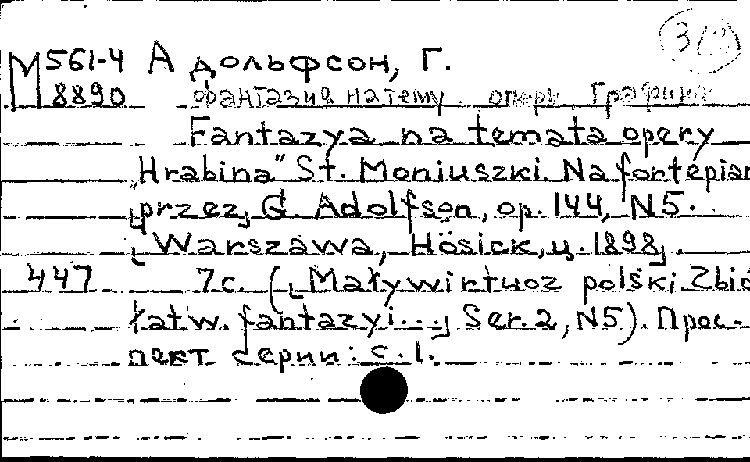 3(2)
М 561-4 Адольфсон, Г.
8890 Фантазия на тему оперы Графиня
Fantazya na temata opery
„Hrabina" St. Moniuszki. Na fortepian
[przez] G. Adolfson, op. 144, N5.
[Warszawa, Hösick, ц. 1898].
447 7с. ([Mały wirtuoz polski. Zbió
łatw. fantazyi...] Ser. 2, N5). Прос-
пект серии: с. 1.